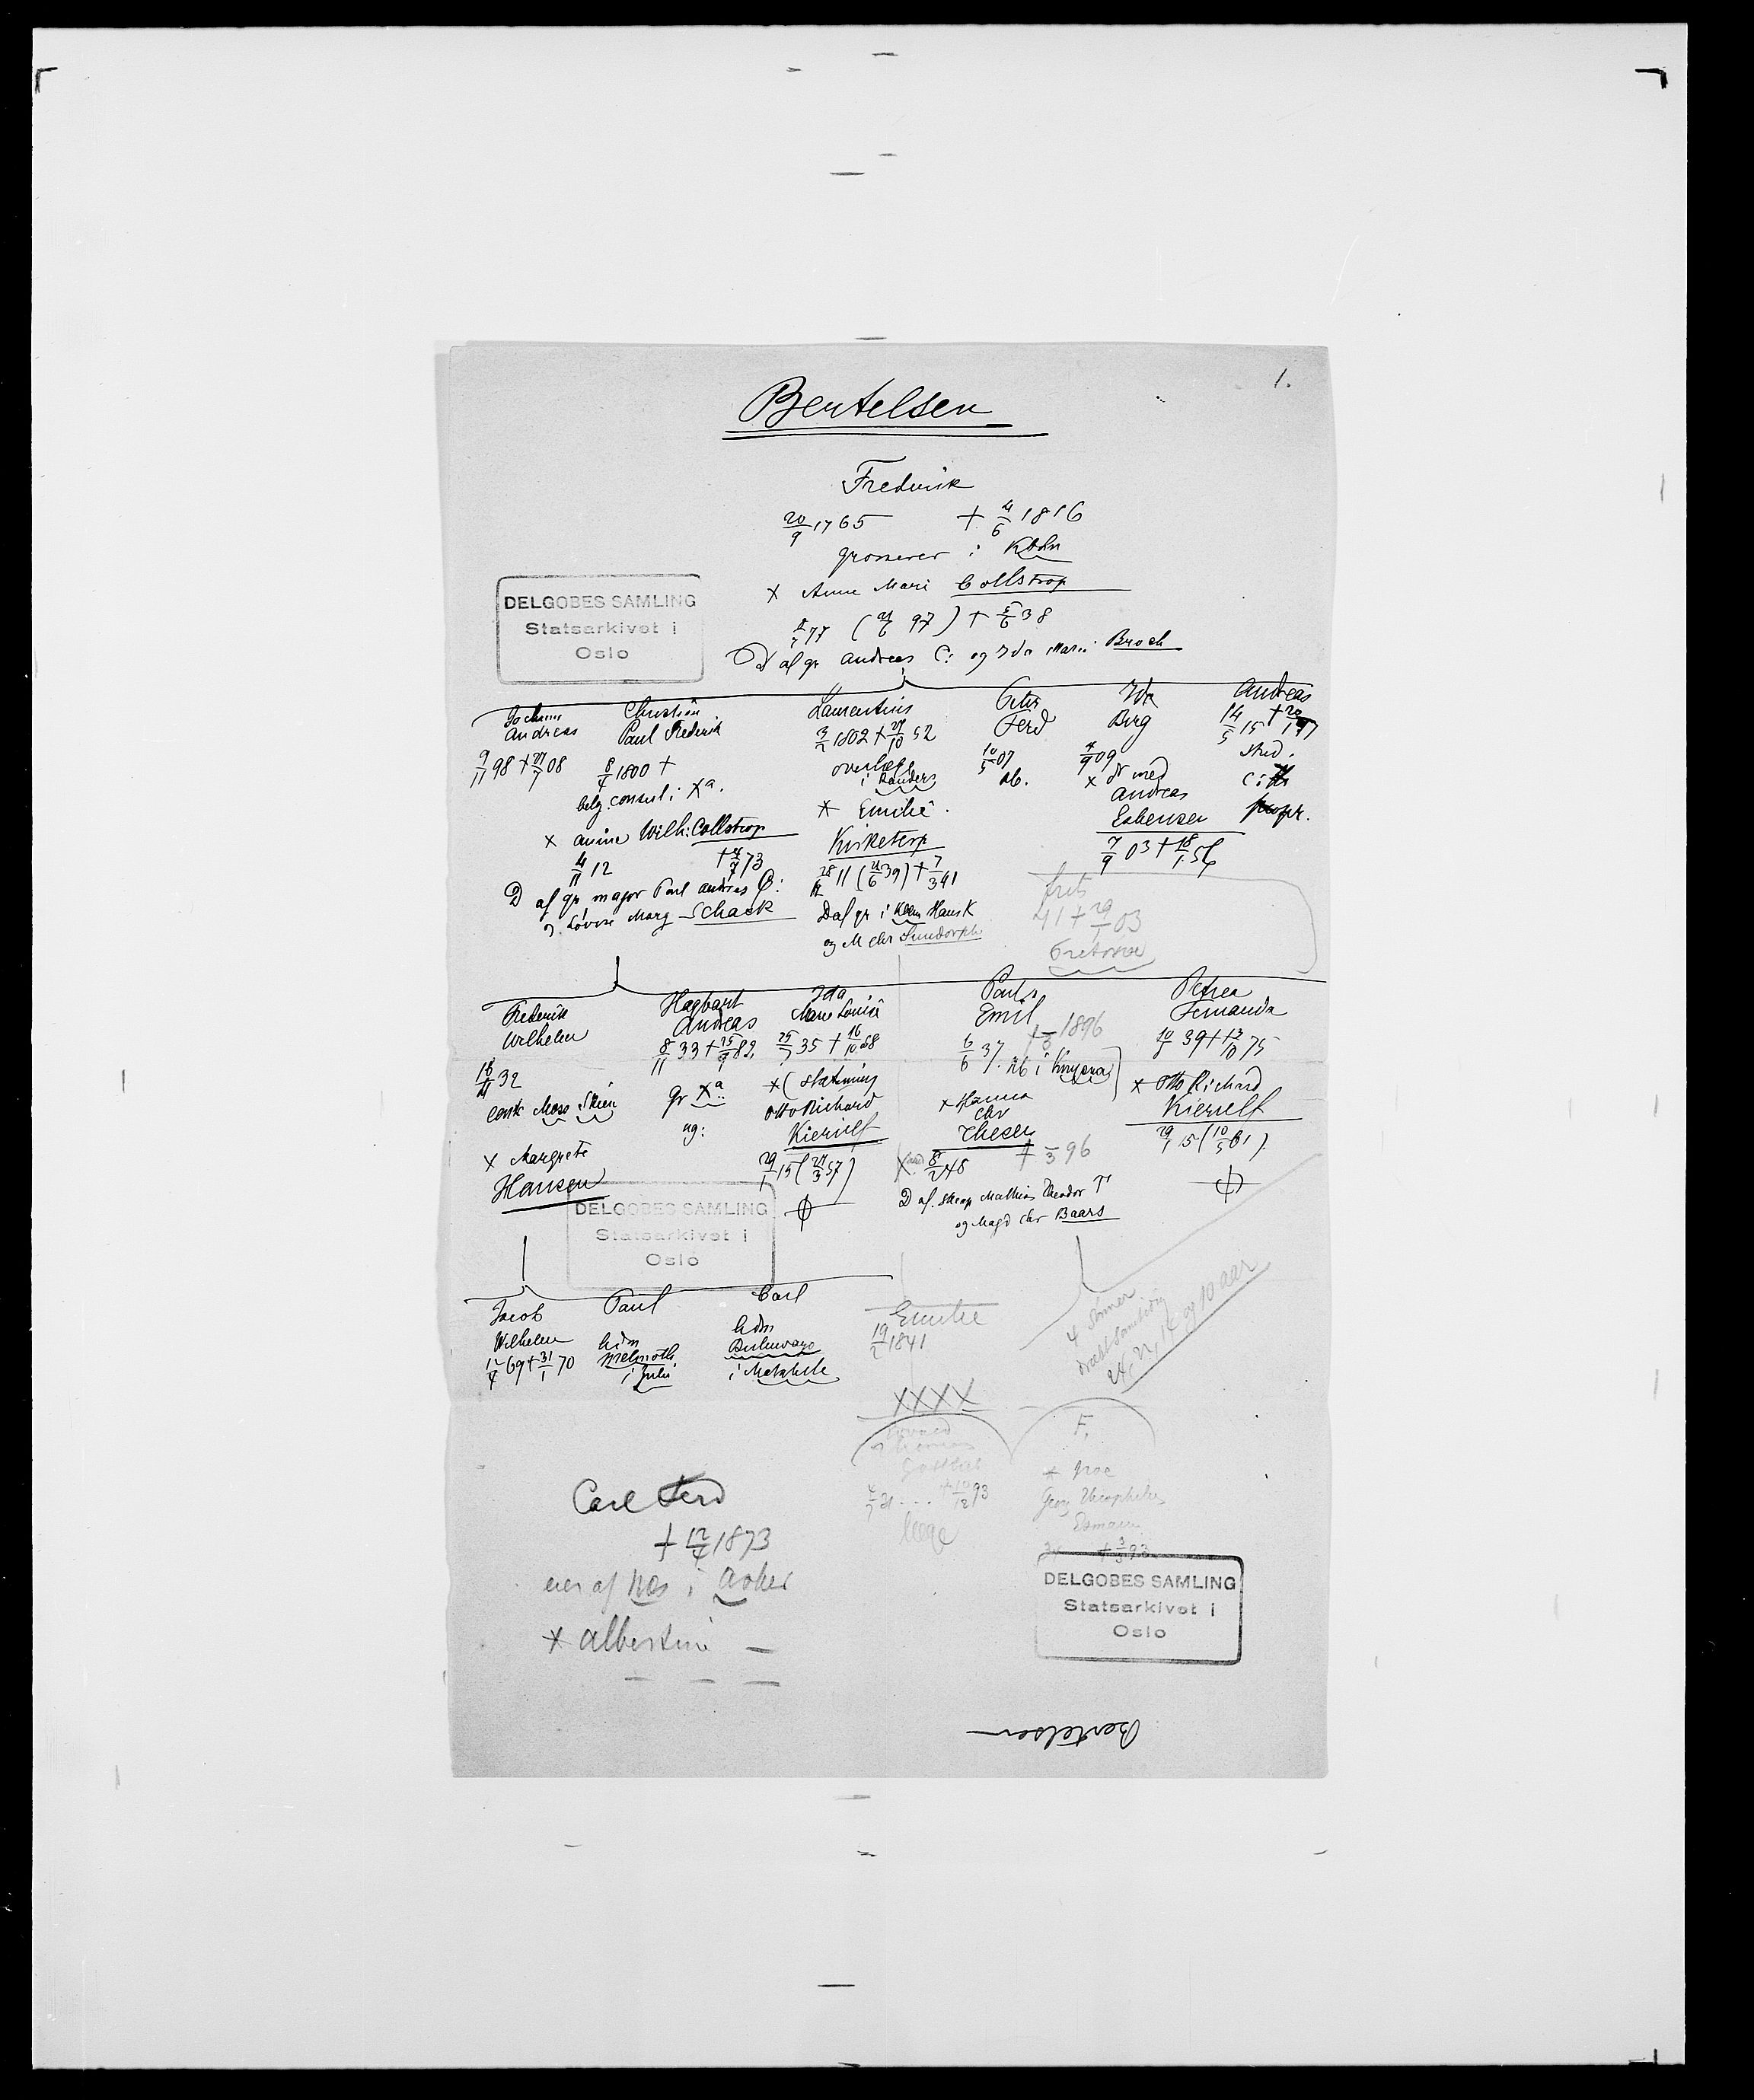 1.
Bertelsen
Frederik
20/9 1765 + 4/6 1816
grosserer i Kbhn
x Anne Marie Collstrop
77 (21/6 97) + 5/6 38
D af gr Andreas C: og Ida Marie Broch
DELGOBES SAMLING
Statsarkivet i
Oslo
Jochum
Andreas
9/11 98 + 27/7 08
Christian
Paul Frederik
8/4 1800 +
belg. consul i Xa.
x Anine Wilh: Collstrop
4/11 12 + 4/7 73
D af gr major Poul Andreas C:
og Lovise Marg Schack
Laurentius
3/2 1802 + 27/10 52
overlæge
i Randers
x Emilie
Kirketerp
28/11 11 (21/6 39) + 7/3 41
D af gr i Kbhn Hans K
og M Chr Sundorph
Peter
Ferd
10/5 07
kb.
Ida
Birg
4/9 09
x Dr med
Andreas
Esbensen
7/9 03 + 18/1 56
Andreas
14/5 15 +
stud.
propr.
frits
41 + 29/1 03
Frederik
Wilhelm
18/4 32
cand. Moss Skien
x Margrete
Hansen
Hagbart
Andreas
8/11 33 + 25/9 82
gr Xa:
ug:
Ida
Marie Louise
25/7 35 + 16/10 58
x (statsminister
Otto Richard
Kierulf
29/1 15 (27/3 57)
Paul
Emil
6/6 37 + /3 1896
kb i Kragerø
x Hanna
Chr
Thesen
8/2 48 + /3 96
D af skrap Mathias Theodor T
og Magd Chr Baars
Petrea
Fernanda
10/8 39 + 12/10 75
x Otto Richard
Kierulf
29/1 15 (10/5 61).
DELGOBES SAMLING
Statsarkivet i
Oslo
Jacob
Wilhelm
12/4 69 + 31/1 70
Paul
kdm
Melmoth
i Zulu
Carl
kdm
Buluwayo
i Matabele
Emilie
19/2 1841
4 sønner
dræbt samtidig
24, 21, 14 og 10 aar
XXXX
Gottlieb
93
læge
F.
x prae
Georg Theophilus
Esmann
Carl Ferd
+ 12/4 1873
eier af Nes i Asker
x Albertine —
— — —
DELGOBES SAMLING
Statsarkivet i
Oslo
Bertelsen